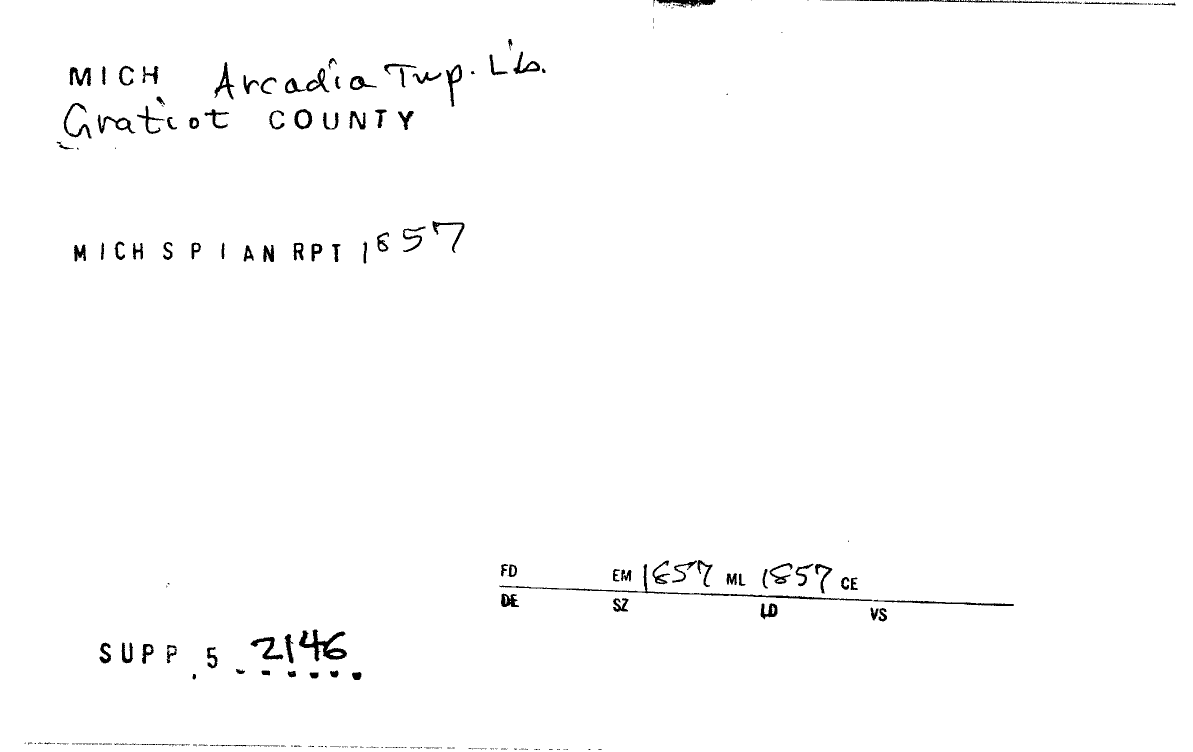 MICH Arcadia Twp. Lib.
Gratiot COUNTY
MICH S P I AN RPT 1857
FD EM 1857 ML 1857 CE
DE SZ LD VS
SUPP. 5 2146